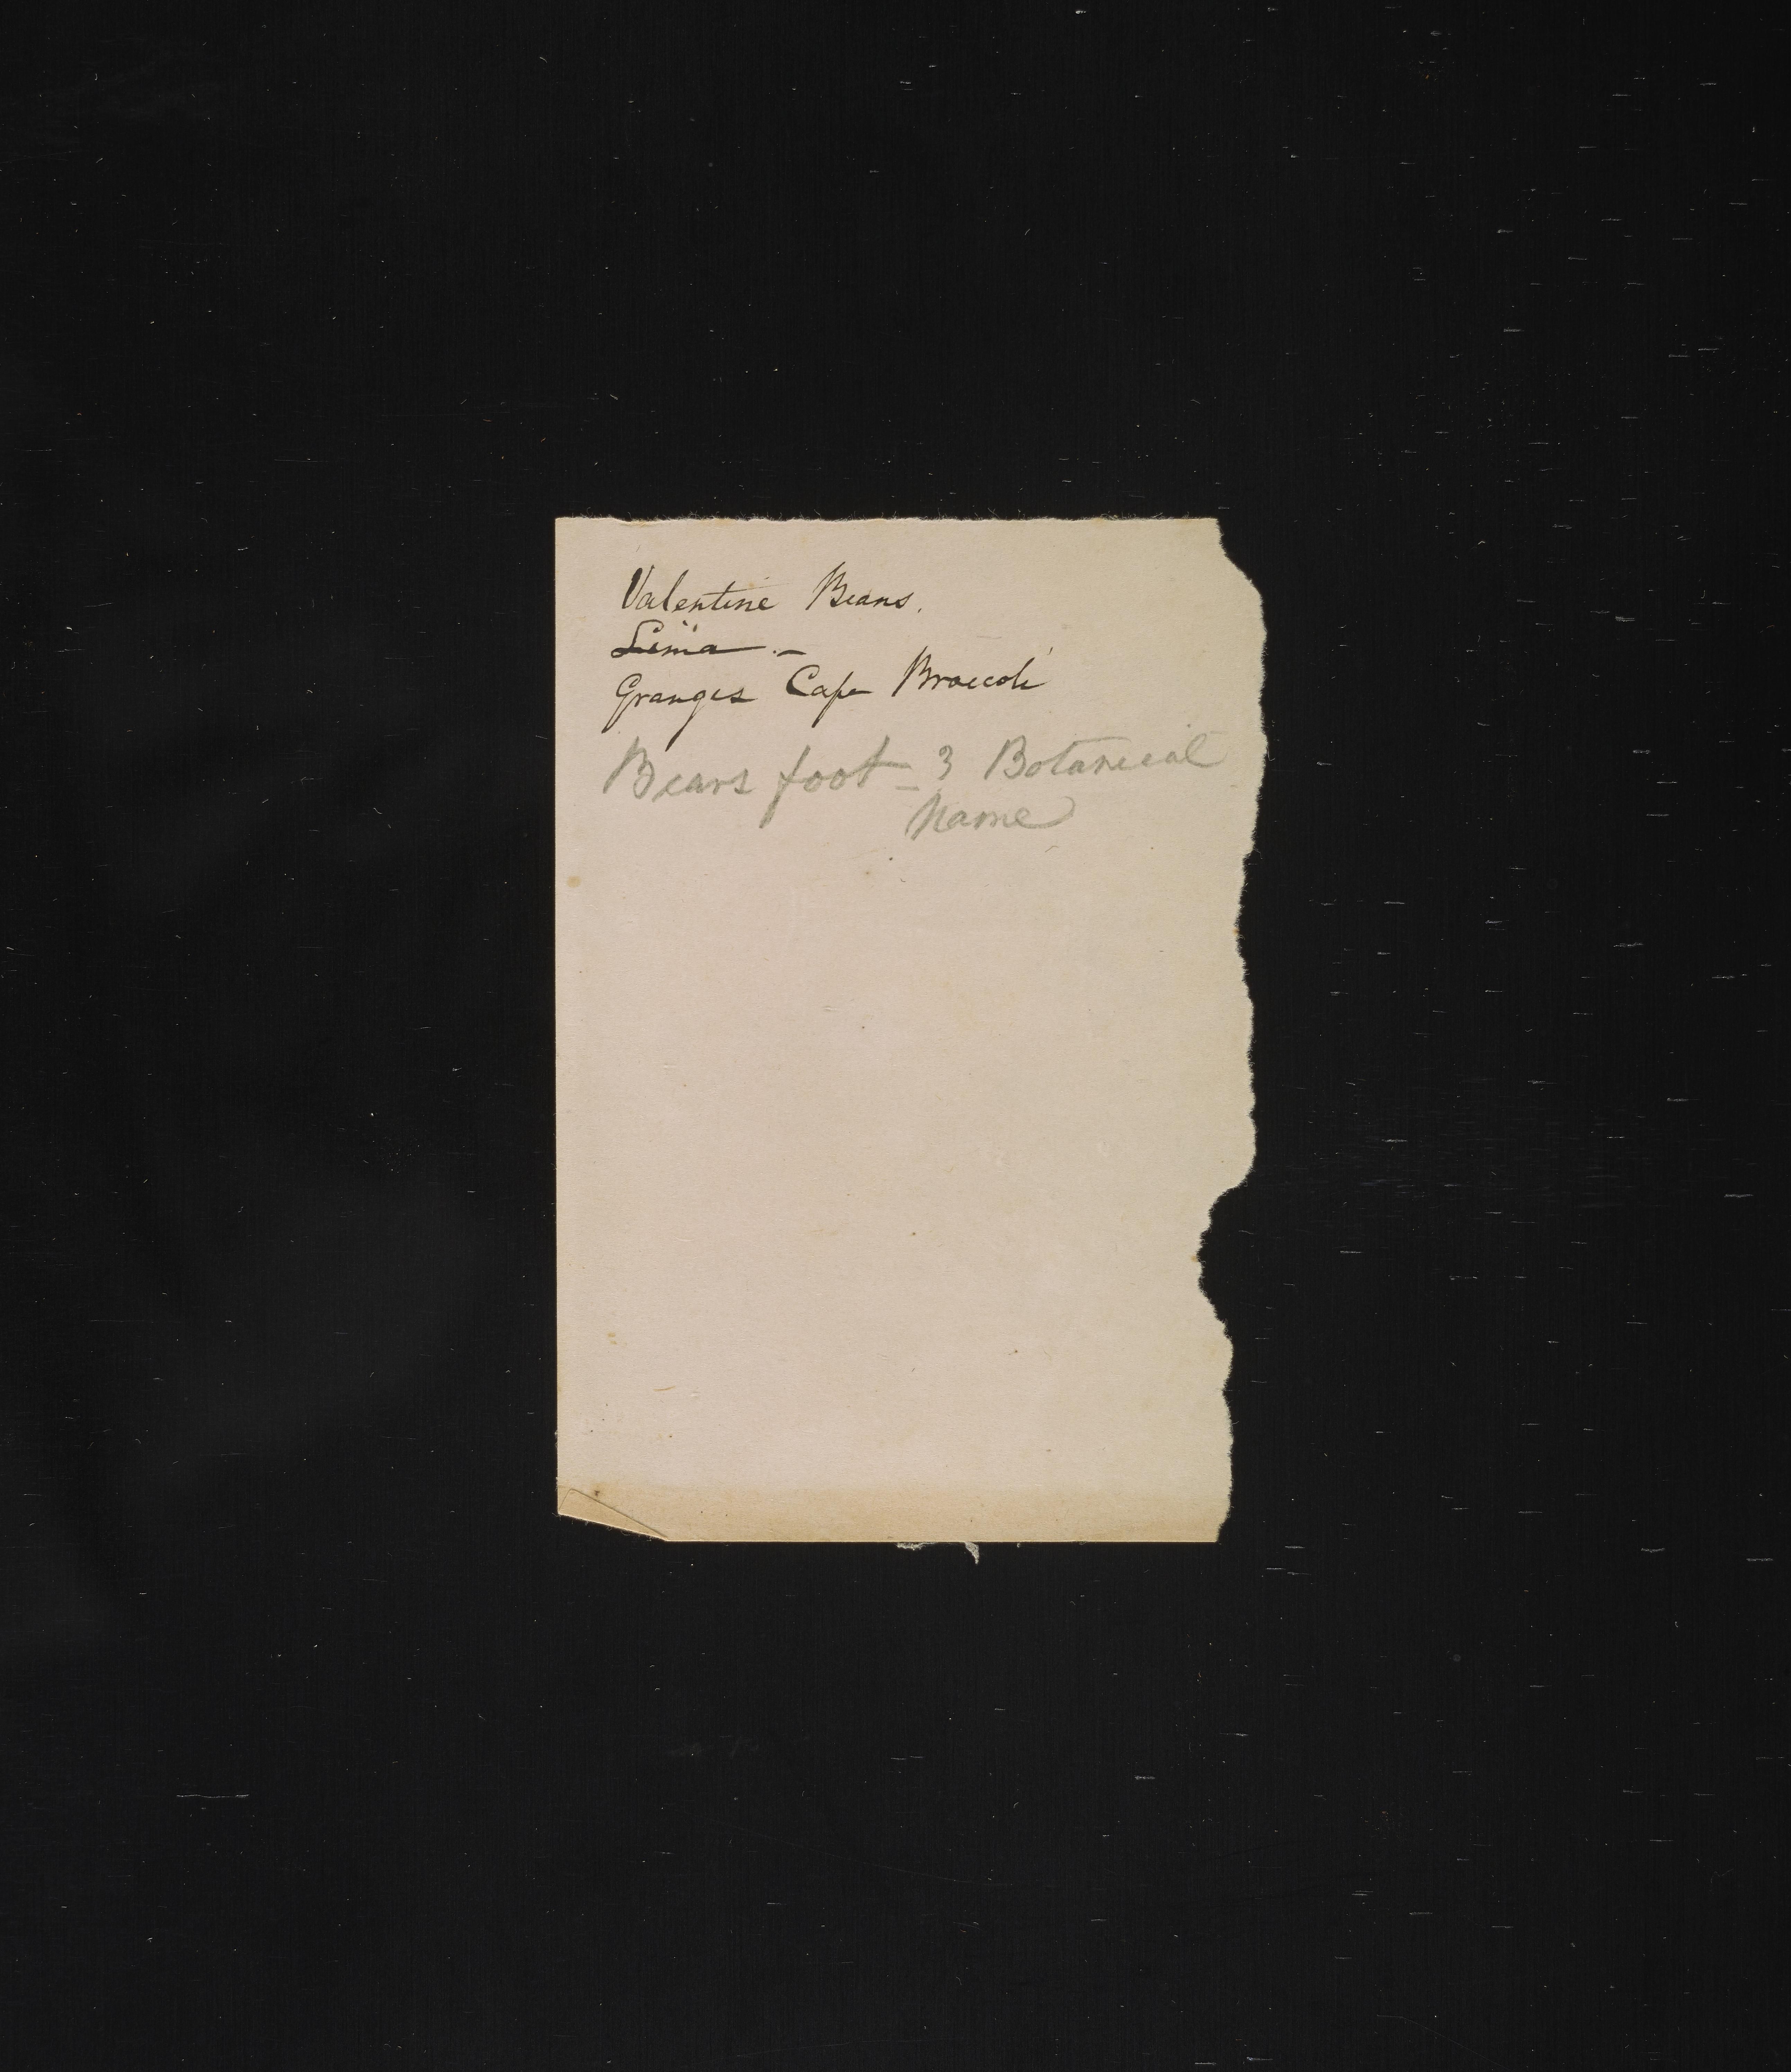 Valentine Beans.
Lima . -
Granges Cape Broccoli
Bears foot - 3 Botanical
Name